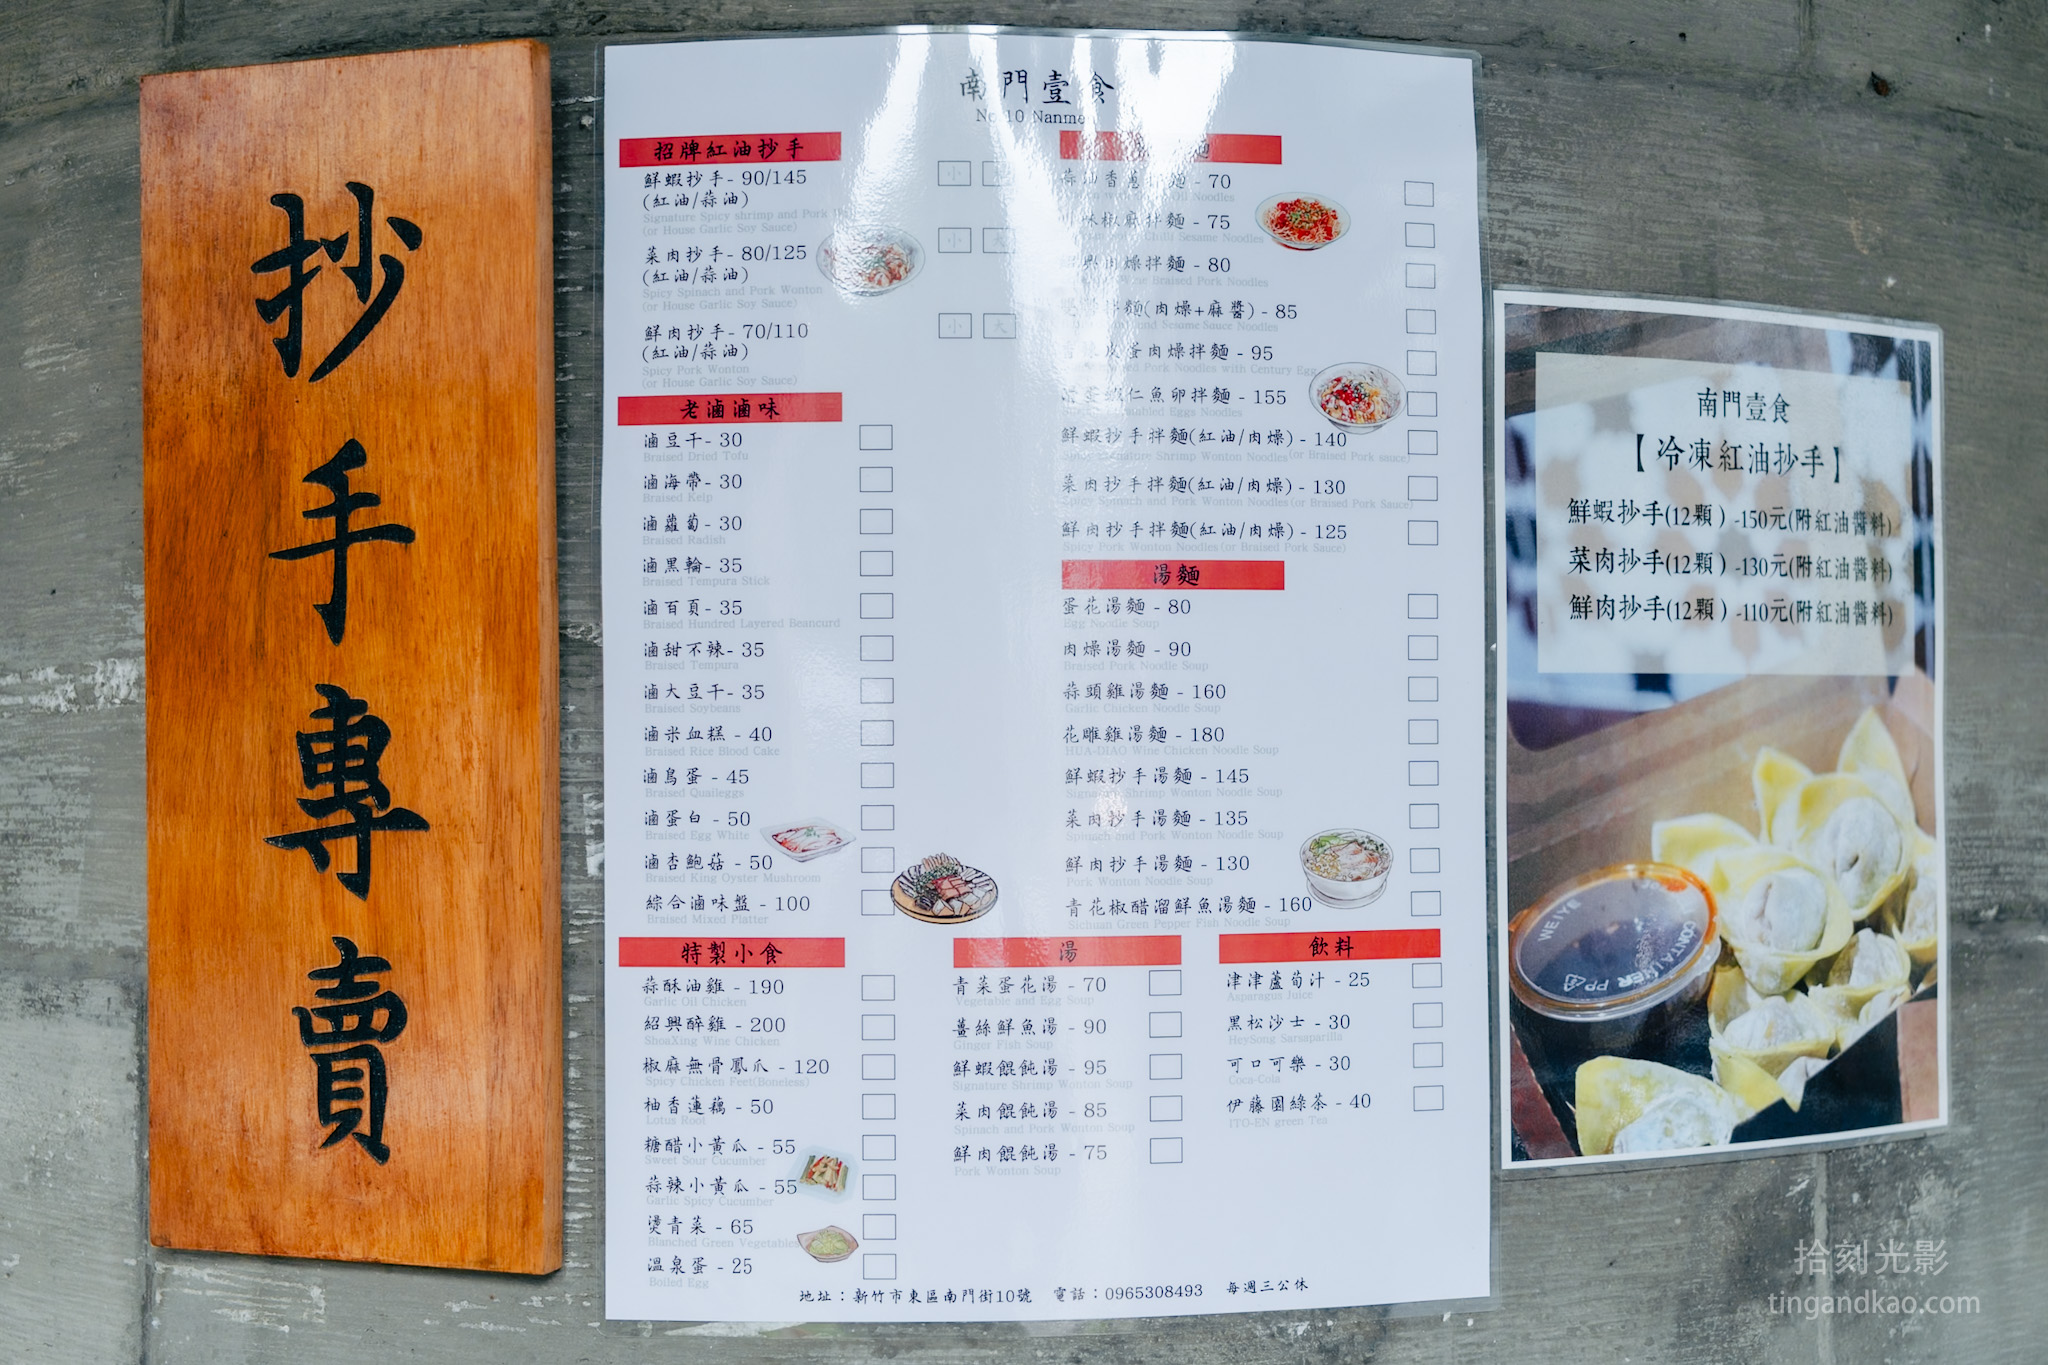 抄手專賣
南門壹食
No 10 Nanme
招牌紅油抄手
鮮蝦抄手- 90/145
(紅油/蒜油)
Signature Spicy shrimp and Pork
(or House Garlic Soy Sauce)
小
菜肉抄手- 80/125
(紅油/蒜油)
Spicy Spinach and Pork Wonton
(or House Garlic Soy Sauce)
小 大
鮮肉抄手- 70/110
(紅油/蒜油)
Spicy Pork Wonton
(or House Garlic Soy Sauce)
小 大
老滷滷味
滷豆干- 30
Braised Dried Tofu
滷海帶- 30
Braised Kelp
滷蘿蔔- 30
Braised Radish
滷黑輪- 35
Braised Tempura Stick
滷百頁- 35
Braised Hundred Layered Beancurd
滷甜不辣- 35
Braised Tempura
滷大豆干- 35
Braised Soybeans
滷米血糕 - 40
Braised Rice Blood Cake
滷鳥蛋 - 45
Braised Quaileggs
滷蛋白 - 50
Braised Egg White
滷杏鮑菇 - 50
Braised King Oyster Mushroom
綜合滷味盤 - 100
Braised Mixed Platter
特製小食
蒜酥油雞 - 190
Garlic Oil Chicken
紹興醉雞 - 200
ShoaXing Wine Chicken
椒麻無骨鳳爪 - 120
Spicy Chicken Feet(Boneless)
柚香蓮藕 - 50
Lotus Root
糖醋小黃瓜 - 55
Sweet Sour Cucumber
蒜辣小黃瓜 - 55
Garlic Spicy Cucumber
燙青菜 - 65
Blanched Green Vegetables
溫泉蛋 - 25
Boiled Egg
麵
蒜油香蔥拌麵 - 70
Oil Noodles
椒麻拌麵 - 75
Chilli Sesame Noodles
肉燥拌麵 - 80
Wine Braised Pork Noodles
麵(肉燥+麻醬) - 85
and Sesame Sauce Noodles
皮蛋肉燥拌麵 - 95
Pork Noodles with Century Egg
蝦仁魚卵拌麵 - 155
Scrambled Eggs Noodles
鮮蝦抄手拌麵(紅油/肉燥) - 140
Spicy Signature Shrimp Wonton Noodles(or Braised Pork sauce)
菜肉抄手拌麵(紅油/肉燥) - 130
Spicy Spinach and Pork Wonton Noodles(or Braised Pork Sauce)
鮮肉抄手拌麵(紅油/肉燥) - 125
Spicy Pork Wonton Noodles(or Braised Pork Sauce)
湯麵
蛋花湯麵 - 80
Egg Noodle Soup
肉燥湯麵 - 90
Braised Pork Noodle Soup
蒜頭雞湯麵 - 160
Garlic Chicken Noodle Soup
花雕雞湯麵 - 180
HUA-DIAO Wine Chicken Noodle Soup
鮮蝦抄手湯麵 - 145
Signature Shrimp Wonton Noodle Soup
菜肉抄手湯麵 - 135
Spinach and Pork Wonton Noodle Soup
鮮肉抄手湯麵 - 130
Pork Wonton Noodle Soup
青花椒醋溜鮮魚湯麵 - 160
Sichuan Green Pepper Fish Noodle Soup
湯
青菜蛋花湯 - 70
Vegetable and Egg Soup
薑絲鮮魚湯 - 90
Ginger Fish Soup
鮮蝦餛飩湯 - 95
Signature Shrimp Wonton Soup
菜肉餛飩湯 - 85
Spinach and Pork Wonton Soup
鮮肉餛飩湯 - 75
Pork Wonton Soup
飲料
津津蘆筍汁 - 25
Asparagus Juice
黑松沙士 - 30
HeySong Sarsaparilla
可口可樂 - 30
Coca-Cola
伊藤園綠茶 - 40
ITO-EN green Tea
地址：新竹市東區南門街10號 電話：0965308493 每週三公休
南門壹食
【冷凍紅油抄手】
鮮蝦抄手(12顆) -150元(附紅油醬料)
菜肉抄手(12顆) -130元(附紅油醬料)
鮮肉抄手(12顆) -110元(附紅油醬料)
WEIYE CONTAINER PP
拾刻光影
tingandkao.com